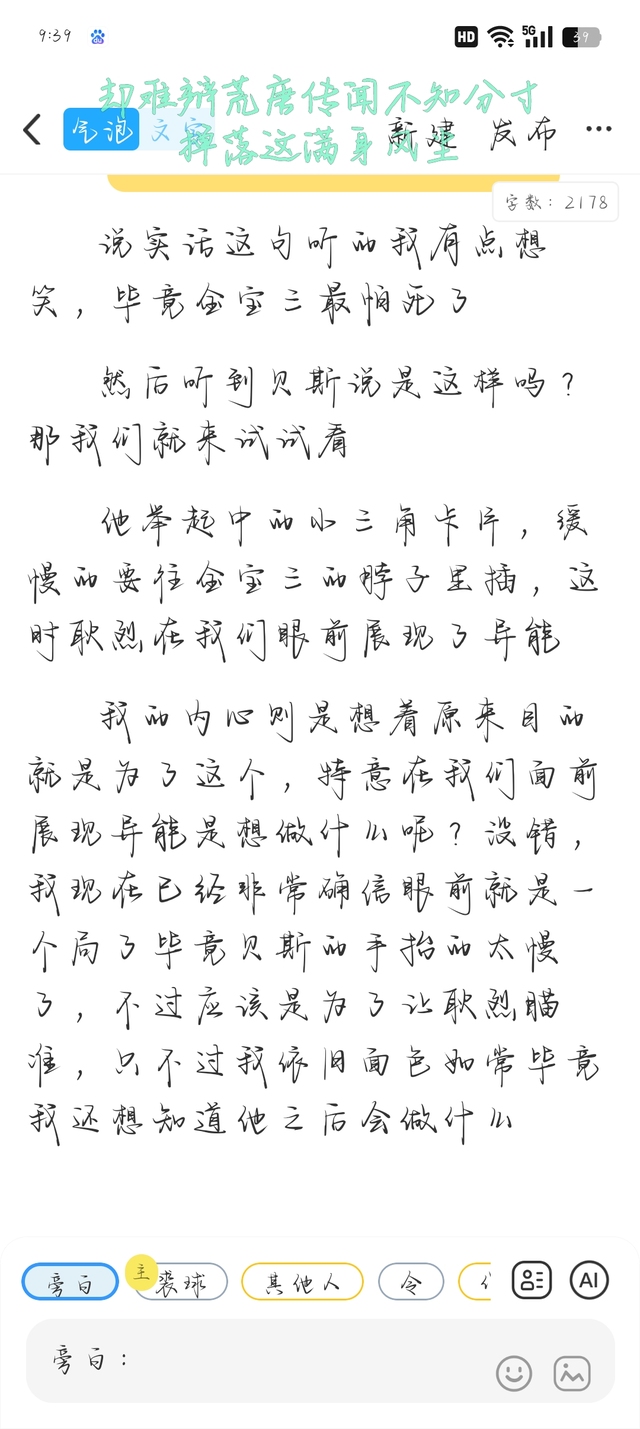 9:39
HD
5G
39
却难辩荒唐传闻不知分寸
掸落这满身风尘
气泡
文字
新建
发布
字数：2178
说实话这句听的我有点想
笑，毕竟金宝三最怕死了
然后听到贝斯说是这样吗？
那我们就来试试看
他举起中的小三角卡片，缓
慢的要往金宝三的脖子里插，这
时耿烈在我们眼前展现了异能
我的内心则是想着原来目的
就是为了这个，特意在我们面前
展现异能是想做什么呢？没错，
我现在已经非常确信眼前就是一
个局了毕竟贝斯的手抬的太慢
了，不过应该是为了让耿烈瞄
准，只不过我依旧面色如常毕竟
我还想知道他之后会做什么
旁白
主
裘球
其他人
令
AI
旁白：